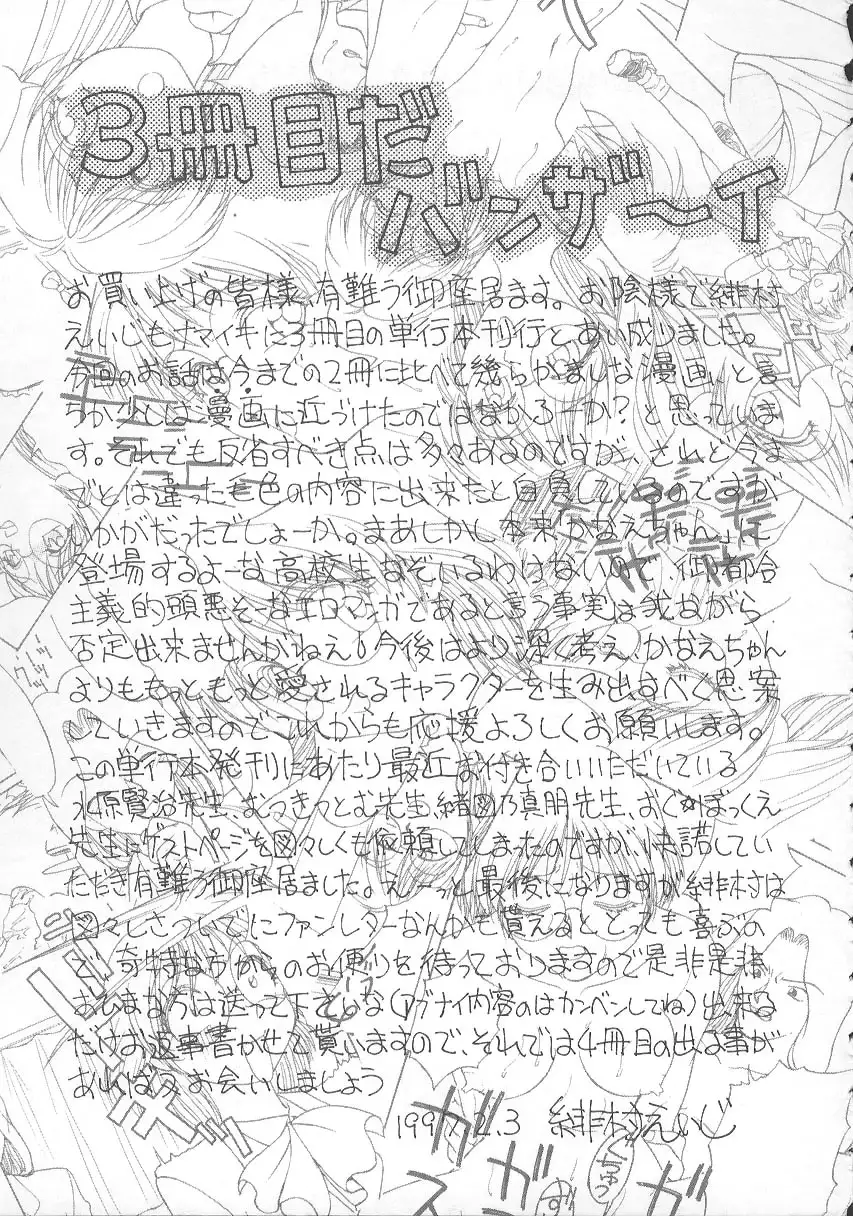 3冊目だ
バンザ〜イ
お買い上げの皆様、有難う御座居ます。お陰様で緋村
えいじもナマイキに3冊目の単行本刊行とあい成りました。
今回のお話は今までの2冊に比べて幾らかましな漫画、と言
うか少しは漫画に近づけたのではなかろーか?と思っていま
す。それでも反省すべき点は多々あるのですが、されど今ま
でとは違った毛色の内容に出来たと自負しているのですが
いかがだったでしょーか。まあしかし本来「かなえちゃん」に
登場するよーな高校生なぞいるわけないので御都合
主義的頭悪そーなエロマンガであると言う事実は我ながら
否定出来ませんがねえ!今後はより深く考え、かなえちゃん
よりももっともっと愛されるキャラクターを生み出すべく思案
していきますのでこれからも応援よろしくお願いします。
この単行本発刊にあたり最近お付き合いいただいている
水原賢治先生、むつきつとむ先生、緒図乃真明先生、おぐ ぼっくえ
先生にゲストページを図々しくも依頼してしまったのですが、快諾してい
ただき有難う御座居ました。え〜っと最後になりますが緋村は
図々しさついでにファンレターなんかも貰えるととっても喜ぶの
で、奇特な方からのお便りを待っておりますので是非是非
おひまならば送って下さいな(アブナイ内容のはカンベンしてね)出来る
だけお返事書かせて貰いますので、それでは4冊目の出る事が
あればまたお会いしましょう
1997.2.3 緋村えいじ
ガ
ガ
ス
ぐちゅっ
ずっ